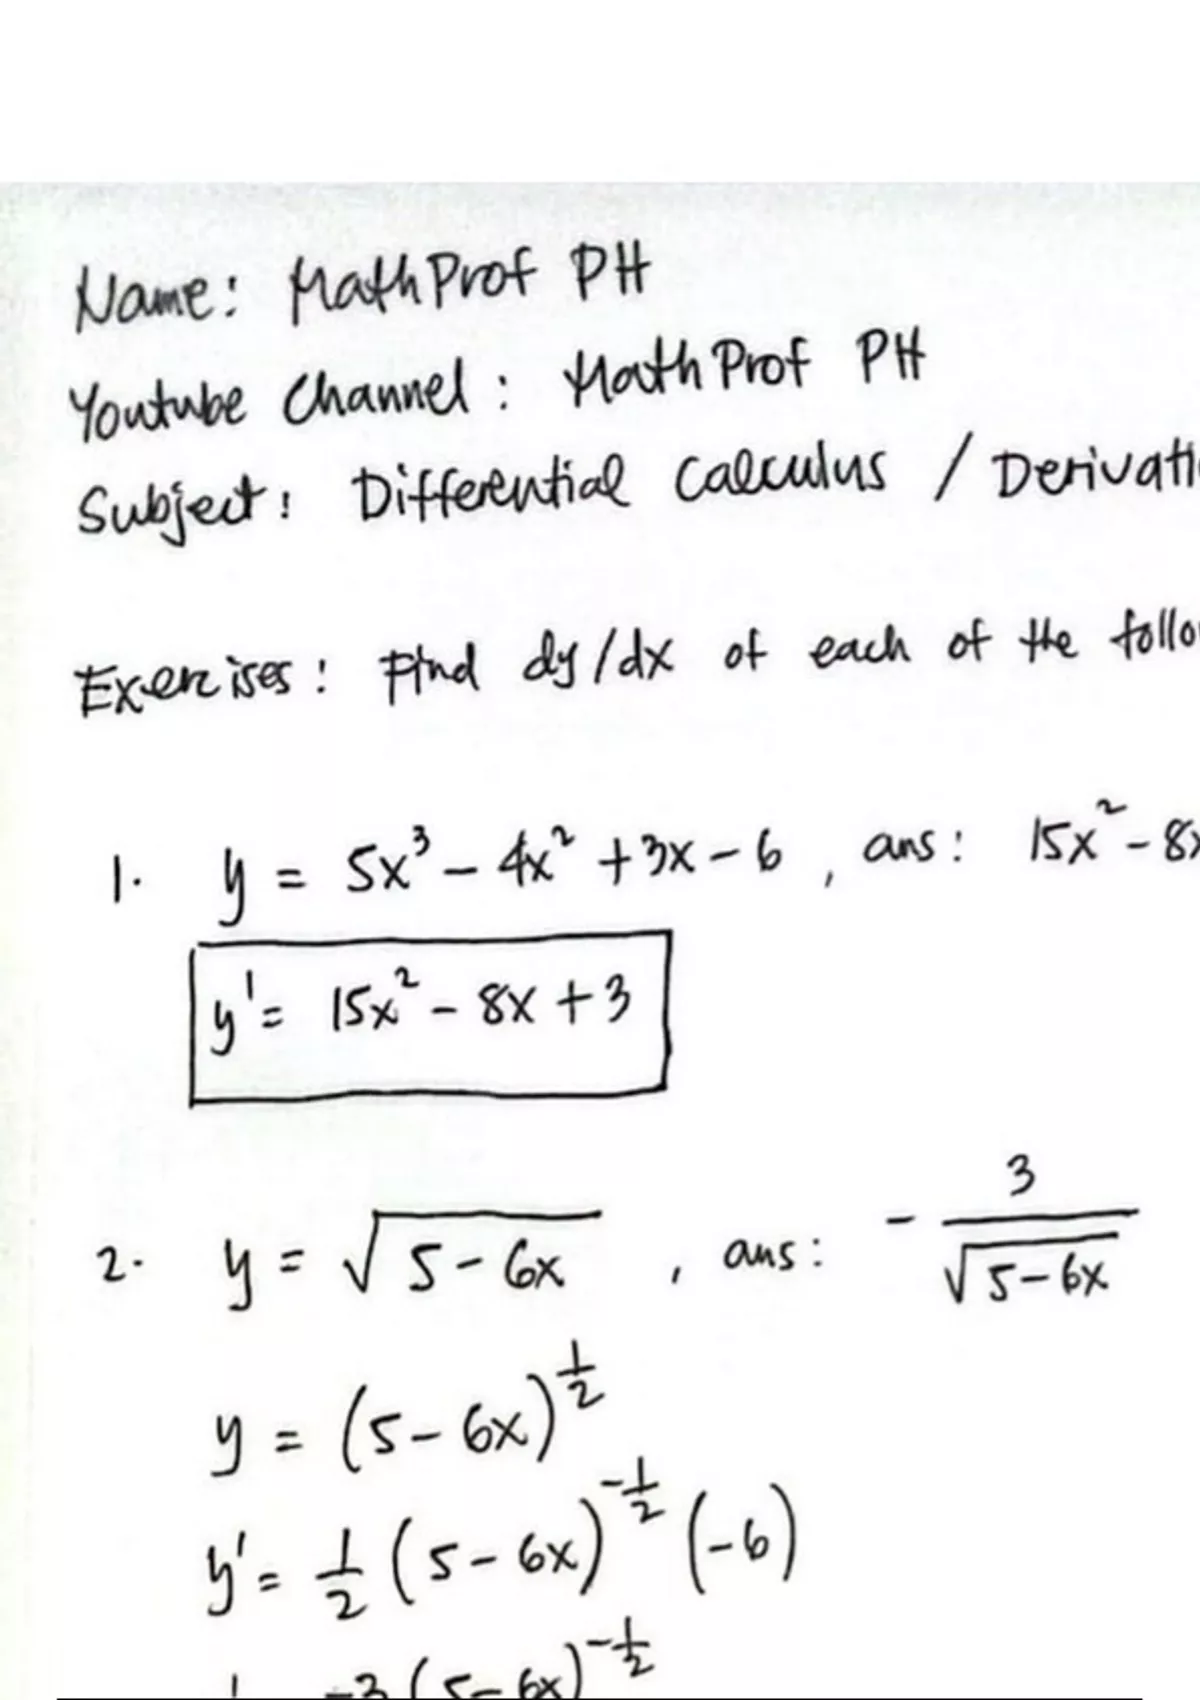 Name: MathProf PH
Youtube Channel: MathProf PH
Subject: Differential Calculus / Derivati
Exercises: Find dy/dx of each of the follo
1. y = 5x³ - 4x² + 3x - 6, ans: 15x² - 8x
y' = 15x² - 8x + 3
2. y = √(5 - 6x), ans: - 3/√(5 - 6x)
y = (5 - 6x)^(1/2)
y' = 1/2 (5 - 6x)^(-1/2) (-6)
-3(5 - 6x)^(-1/2)